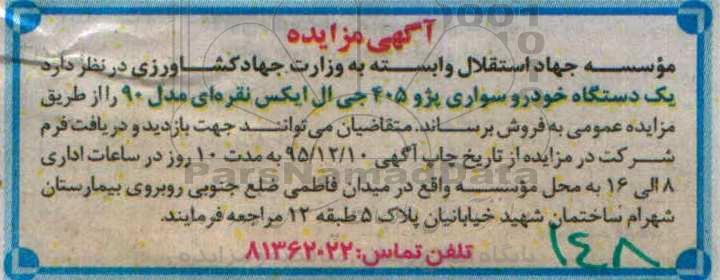 آگهی مزایده
مؤسسه جهاد استقلال وابسته به وزارت جهاد کشاورزی در نظر دارد
یک دستگاه خودرو سواری پژو ۴۰۵ جی ال ایکس نقره‌ای مدل ۹۰ را از طریق
مزایده عمومی به فروش برساند. متقاضیان می‌توانند جهت بازدید و دریافت فرم
شرکت در مزایده از تاریخ چاپ آگهی ۹۵/۱۲/۱۰ به مدت ۱۰ روز در ساعات اداری
۸ الی ۱۶ به محل مؤسسه واقع در میدان فاطمی ضلع جنوبی روبروی بیمارستان
شهرام ساختمان شهید خیابانیان پلاک ۵ طبقه ۱۲ مراجعه فرمایند.
تلفن تماس: ۸۱۳۶۲۰۲۲
۱۴۸
ParsNamadData